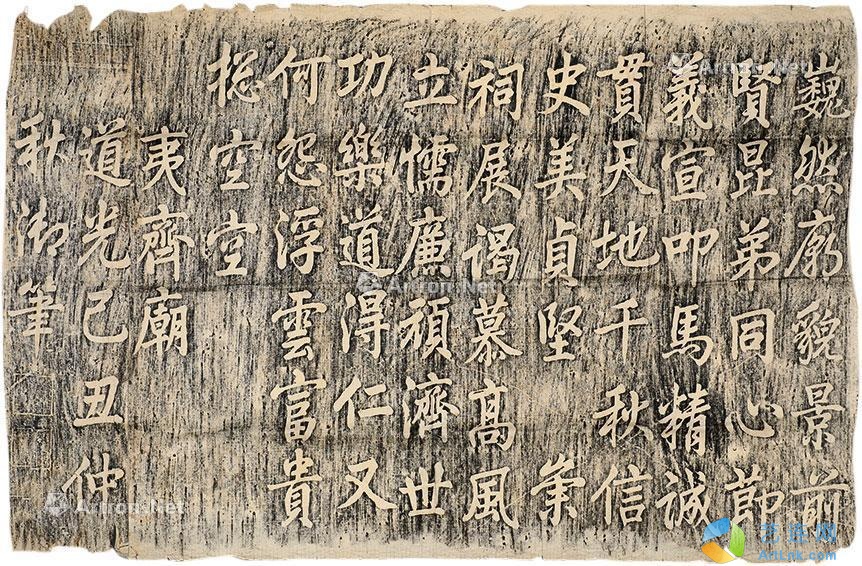 巍然廟貌景前
賢昆弟同心節
義宣叩馬精誠
貫天地千秋信
史美貞堅 崇
祠展謁慕髙風
立懦廉頑濟世
功樂道得仁又
何怨浮雲富貴
捴空空
夷齊廟
道光己丑仲
秋御筆
Artron.Net
Artron.Net
Artron.Net
Artron.Net